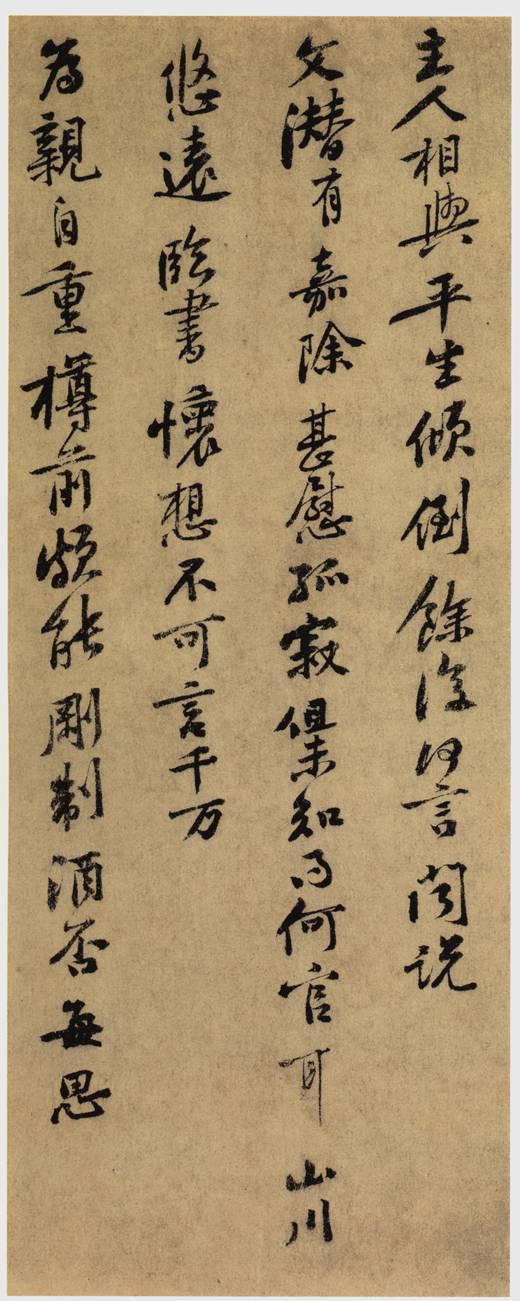 主人相與平生傾倒餘復何言聞說
文潛有嘉除甚慰孤寂但未知得何官耳山川
悠遠臨書懷想不可言千万
為親自重樽前頗能剛制酒否每思